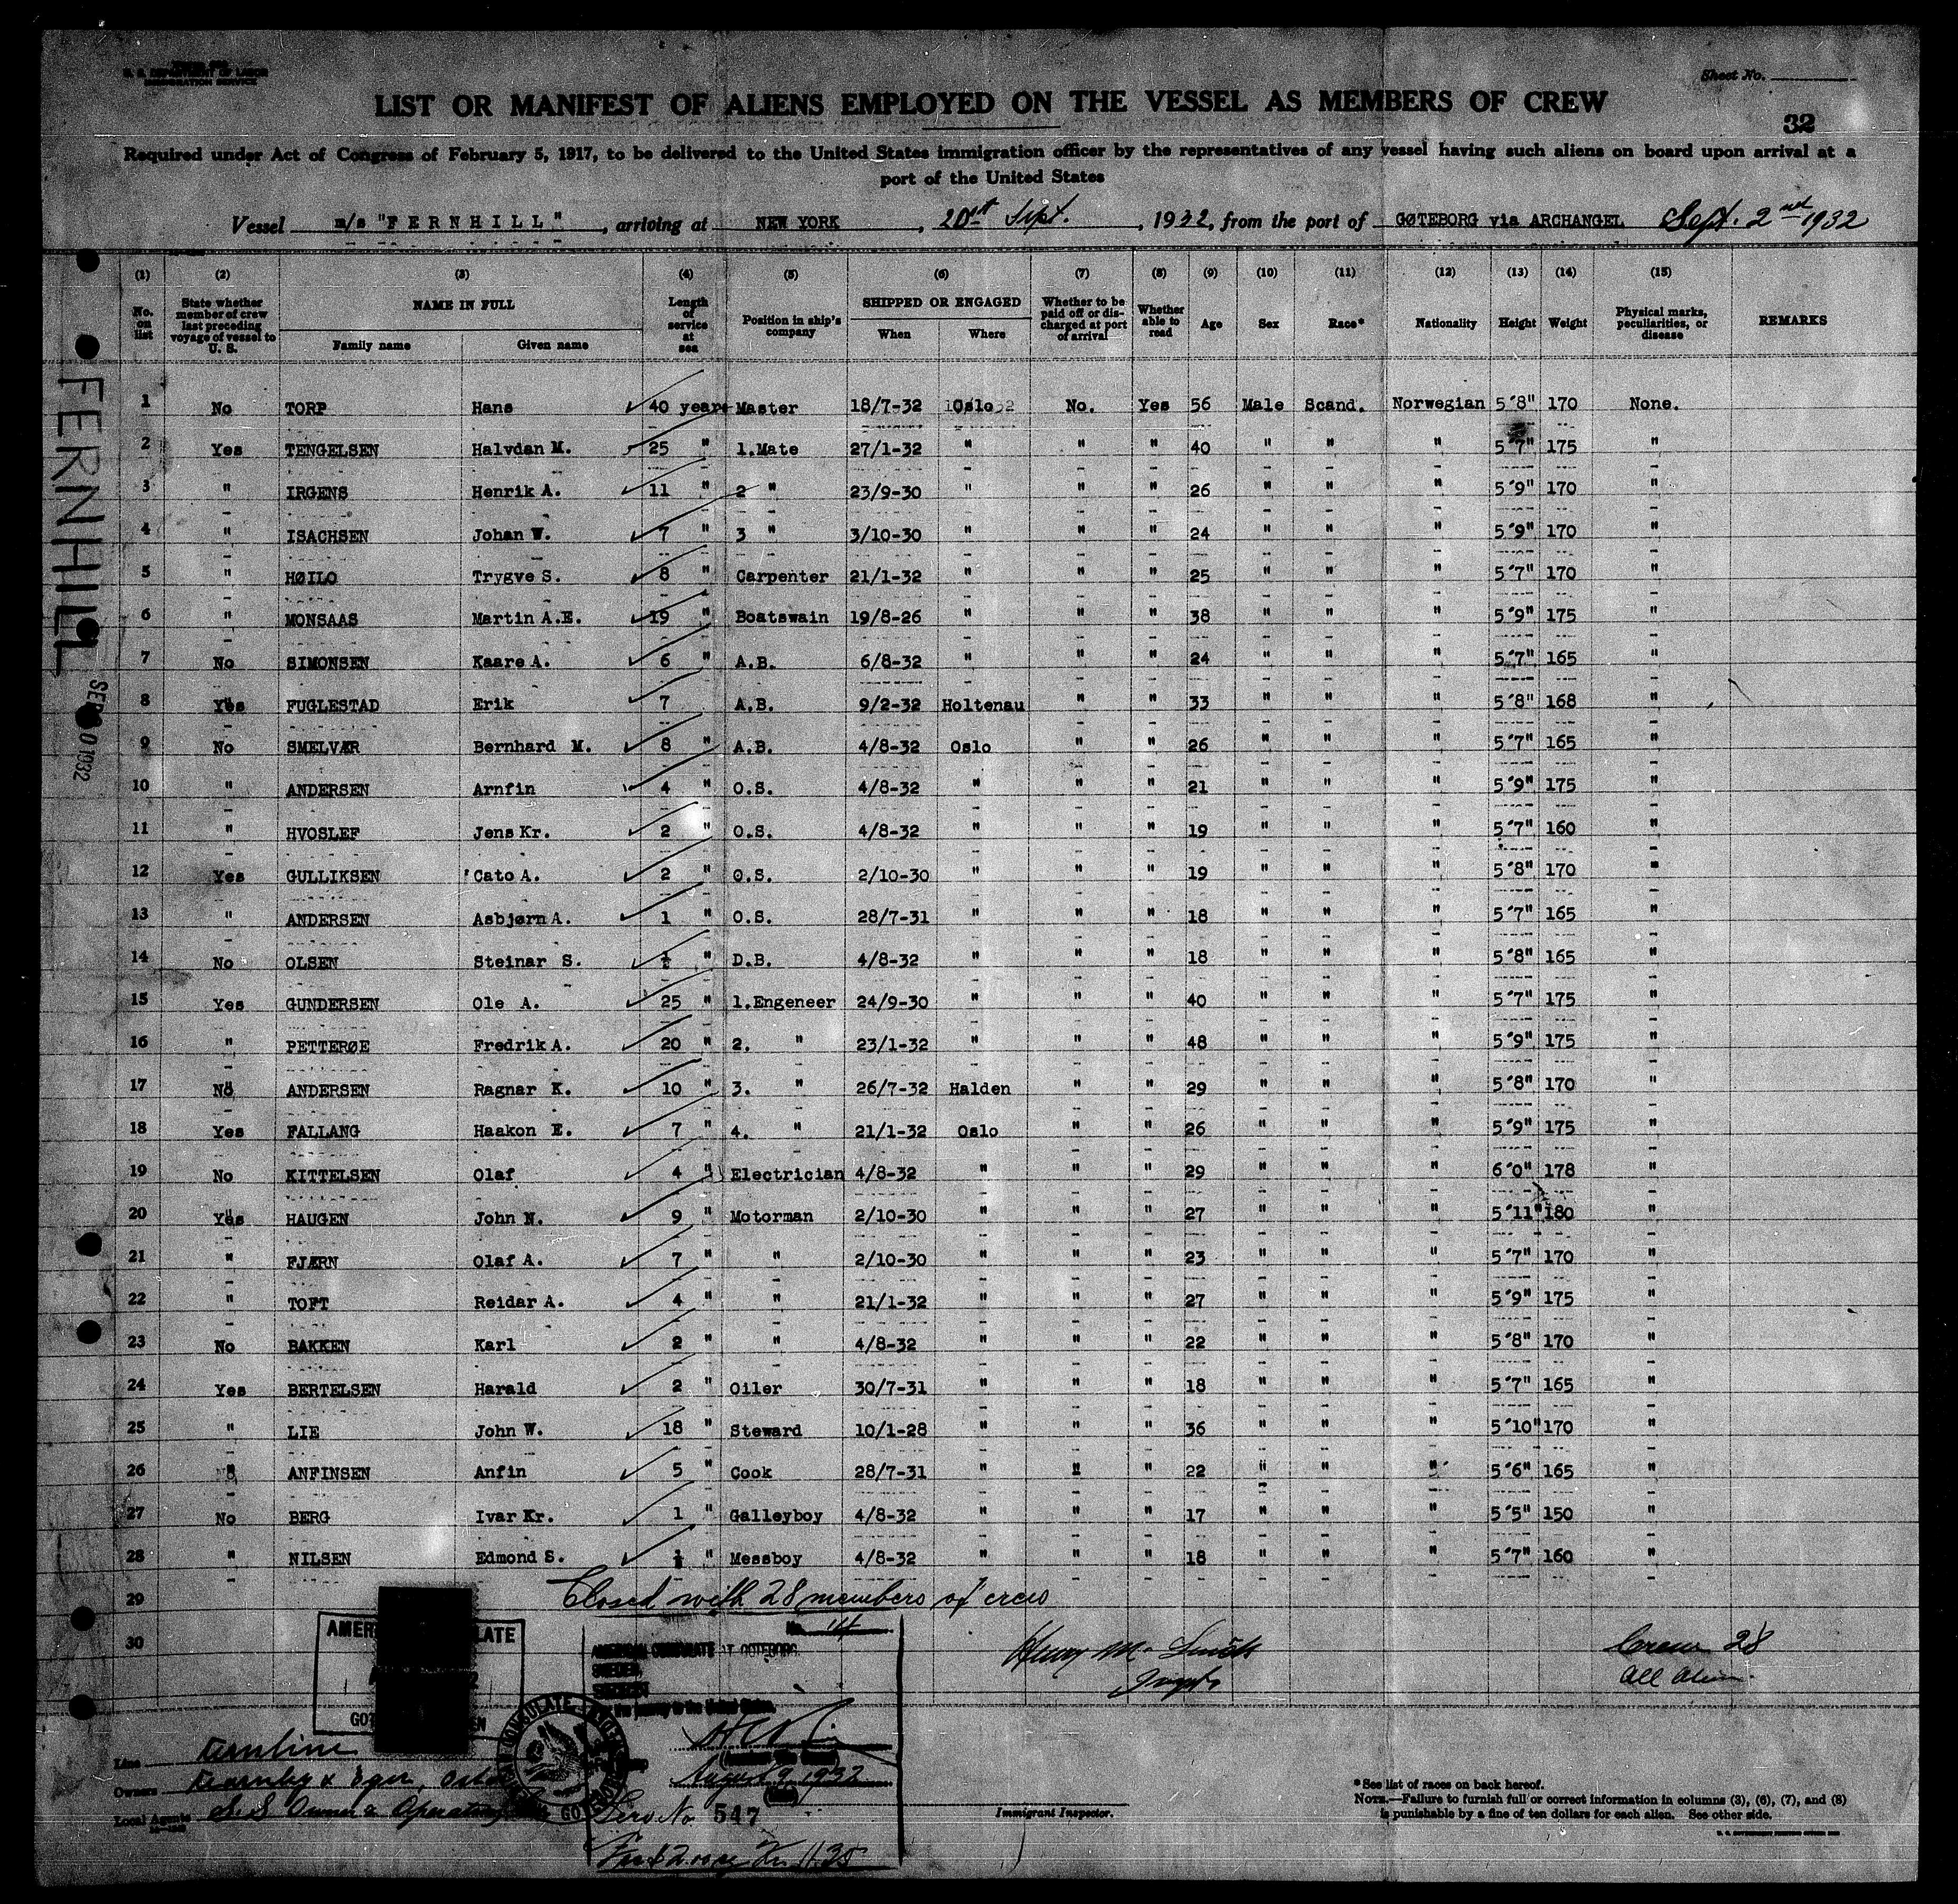 U. S. DEPARTMENT OF LABOR
IMMIGRATION SERVICE
Sheet No.
LIST OR MANIFEST OF ALIENS EMPLOYED ON THE VESSEL AS MEMBERS OF CREW
32
Required under Act of Congress of February 5, 1917, to be delivered to the United States immigration officer by the representatives of any vessel having such aliens on board upon arrival at a
port of the United States
Vessel m/s "FERNHILL", arriving at NEW YORK, 20st Sept., 1932, from the port of GØTEBORG via ARCHANGEL Sept. 2nd 1932
(1) (2) (3) (4) (5) (6) (7) (8) (9) (10) (11) (12) (13) (14) (15)
No. on list State whether member of crew last preceding voyage of vessel to U. S. NAME IN FULL Family name Given name Length of service at sea Position in ship's company SHIPPED OR ENGAGED When Where Whether to be paid off or discharged at port of arrival Whether able to read Age Sex Race* Nationality Height Weight Physical marks, peculiarities, or disease REMARKS
1 No TORP Hans 40 years Master 18/7-32 Oslo No. Yes 56 Male Scand. Norwegian 5'8" 170 None.
2 Yes TENGELSEN Halvdan M. 25 " 1.Mate 27/1-32 " " " 40 " " " 5'7" 175 "
3 " IRGENS Henrik A. 11 " 2 " 23/9-30 " " " 26 " " " 5'9" 170 "
4 " ISACHSEN Johan W. 7 " 3 " 3/10-30 " " " 24 " " " 5'9" 170 "
5 " HØILO Trygve S. 8 " Carpenter 21/1-32 " " " 25 " " " 5'7" 170 "
6 " MONSAAS Martin A.E. 19 " Boatswain 19/8-26 " " " 38 " " " 5'9" 175 "
7 No SIMONSEN Kaare A. 6 " A.B. 6/8-32 " " " 24 " " " 5'7" 165 "
8 Yes FUGLESTAD Erik 7 A.B. 9/2-32 Holtenau " " 33 " " " 5'8" 168 "
9 No SMELVÆR Bernhard M. 8 " A.B. 4/8-32 Oslo " " 26 " " " 5'7" 165 "
10 " ANDERSEN Arnfin 4 " O.S. 4/8-32 " " " 21 " " " 5'9" 175 "
11 " HVOSLEF Jens Kr. 2 " O.S. 4/8-32 " " " 19 " " " 5'7" 160 "
12 Yes GULLIKSEN Cato A. 2 " O.S. 2/10-30 " " " 19 " " " 5'8" 170 "
13 " ANDERSEN Asbjørn A. 1 " O.S. 28/7-31 " " " 18 " " " 5'7" 165 "
14 No OLSEN Steinar S. " D.B. 4/8-32 " " " 18 " " " 5'8" 165 "
15 Yes GUNDERSEN Ole A. 25 " 1.Engeneer 24/9-30 " " " 40 " " " 5'7" 175 "
16 " PETTERØE Fredrik A. 20 " 2. " 23/1-32 " " " 48 " " " 5'9" 175 "
17 No ANDERSEN Ragnar K. 10 " 3. " 26/7-32 Halden " " 29 " " " 5'8" 170 "
18 Yes FALLANG Haakon E. 7 " 4. " 21/1-32 Oslo " " 26 " " " 5'9" 175 "
19 No KITTELSEN Olaf 4 " Electrician 4/8-32 " " " 29 " " " 6'0" 178 "
20 Yes HAUGEN John N. 9 " Motorman 2/10-30 " " " 27 " " " 5'11" 180 "
21 " FJÆRN Olaf A. 7 " " 2/10-30 " " " 23 " " " 5'7" 170 "
22 " TOFT Reidar A. 4 " " 21/1-32 " " " 27 " " " 5'9" 175 "
23 No BAKKEN Karl 2 " " 4/8-32 " " " 22 " " " 5'8" 170 "
24 Yes BERTELSEN Harald 2 " Oiler 30/7-31 " " " 18 " " " 5'7" 165 "
25 " LIE John W. 18 " Steward 10/1-28 " " " 36 " " " 5'10" 170 "
26 " ANFINSEN Anfin 5 " Cook 28/7-31 " " " 22 " " " 5'6" 165 "
27 No BERG Ivar Kr. 1 " Galleyboy 4/8-32 " " " 17 " " " 5'5" 150 "
28 " NILSEN Edmond S. " Messboy 4/8-32 " " " 18 " " " 5'7" 160 "
29 Closed with 28 members of crew
30
FERNHILL
1932
No. 14
AMERICAN CONSULATE AT GOTEBORG,
SWEDEN
Henry M. Smith
Crew 28
All Alien
Line Fernline
Owners Fearnley & Eger, Oslo
Local Agents
August 9, 1932
Serv. No 547
Immigrant Inspector.
*See list of races on back hereof.
NOTE.—Failure to furnish full or correct information in columns (3), (6), (7), and (8)
is punishable by a fine of ten dollars for each alien. See other side.